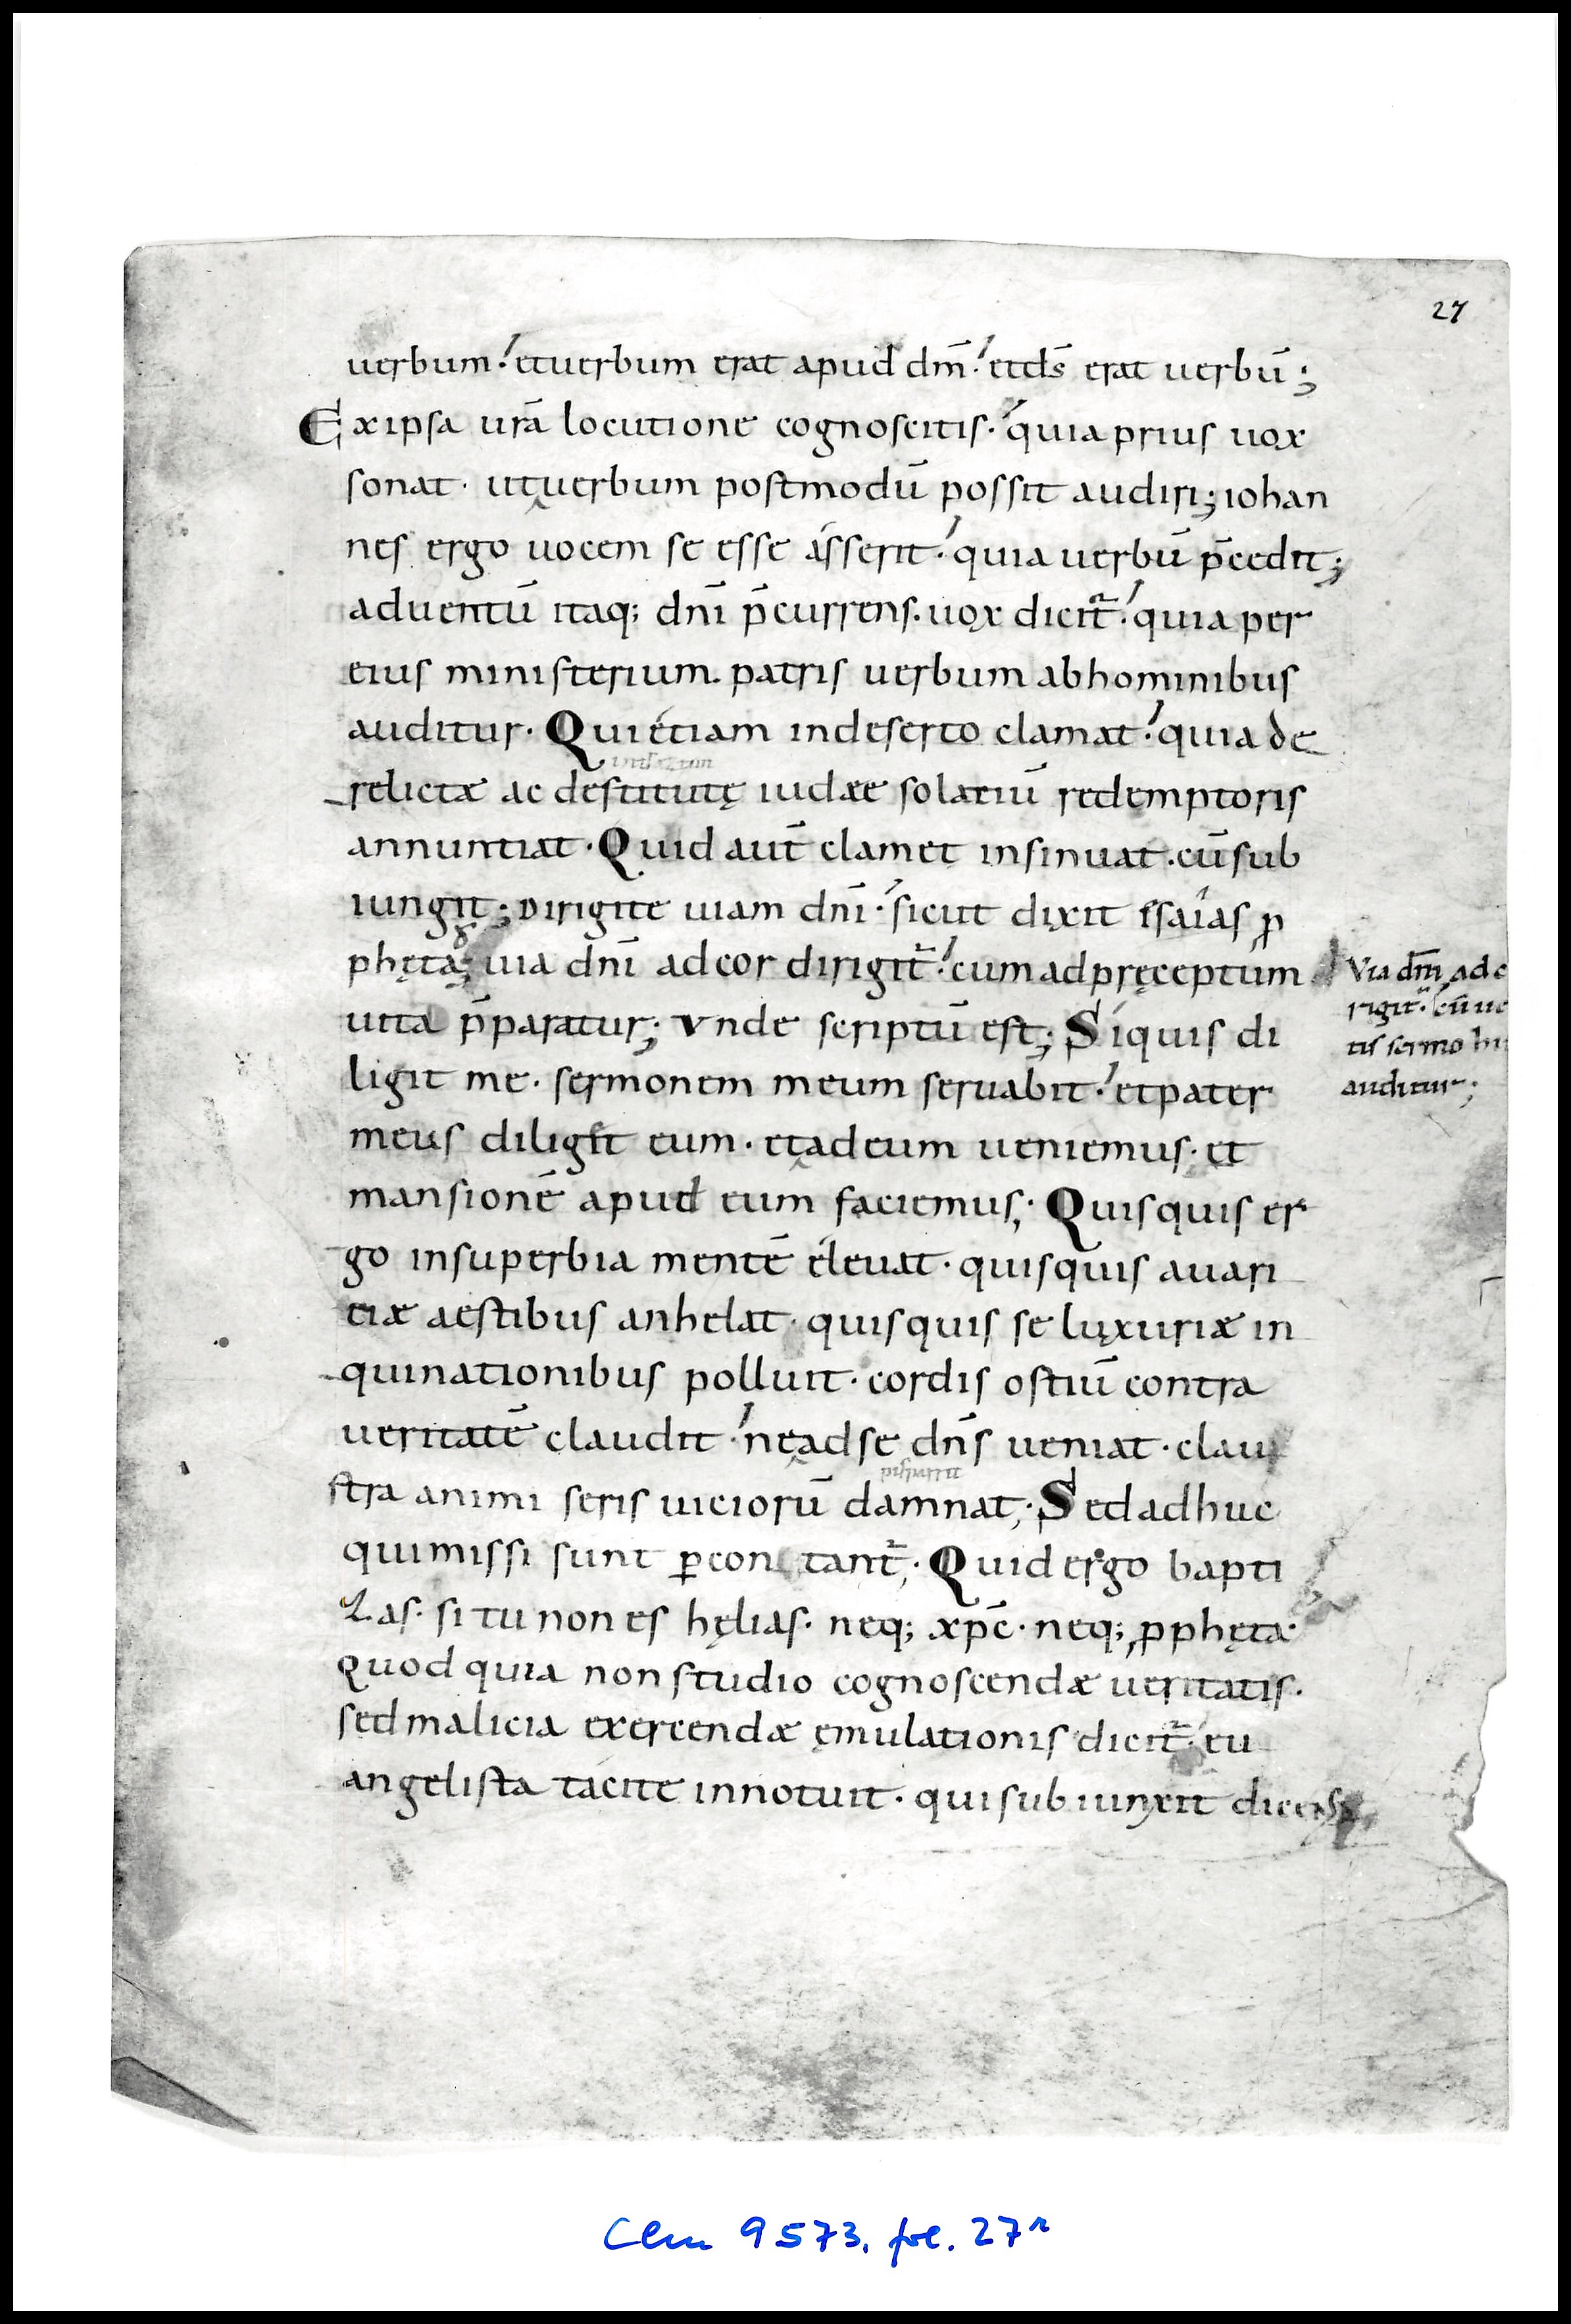 27
uerbum· etuerbum erat apud dm̄· etds̄ erat uerbū;
Exipsa urā locutione cognoscitis· quia prius uox
sonat· utuerbum postmodū possit audiri; iohan
nes ergo uocem se esse asserit· quia uerbū p̄cedit;
aduentū itaq; dnī p̄currens· uox dicit̄· quia per
eius ministerium· patris uerbum abhominibus
auditur· Qui etiam indeserto clamat· quia de
relictæ ac destitutę iudææ solatiū redemptoris
annuntiat· Quid aut̄ clamet insinuat· cūsub
iungit; Dirigite uiam dnī· sicut dixit esaias ꝓ
phęta; uia dnī adcor dirigit̄· cumadpręceptum
uita p̄paratur; Vnde scriptū est; Siquis di
ligit me· sermonem meum seruabit· etpater
meus diligit eum· etadeum ueniemus· et
mansionē apud eum faciemus; Quisquis er
go insuperbia mentē eleuat· quisquis auari
tiæ aestibus anhelat· quisquis se luxuriæ in
quinationibus polluit· cordis ostiū contra
ueritatē claudit· neadse dn̄s ueniat· clau
stra animi seris uiciorū damnat; Sedadhuc
quimissi sunt ꝑcon tant̄; Quid ergo bapti
zas· si tu non es hęlias· neq; xp̄c· neq; ꝓphęta·
Quod quia non studio cognoscendæ ueritatis·
sed malicia exercendæ ęmulationis dicit̄ eu
angelista tacite innotuit· qui subiunxit dicens
Via dnī ad c
rigit̄· cū ue
tis sermo hu
auditur;
Clm 9573, fol. 27r